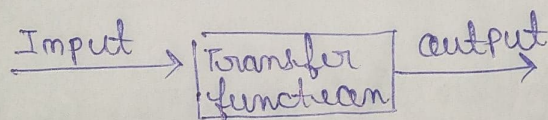 Input
Transfer
function
output